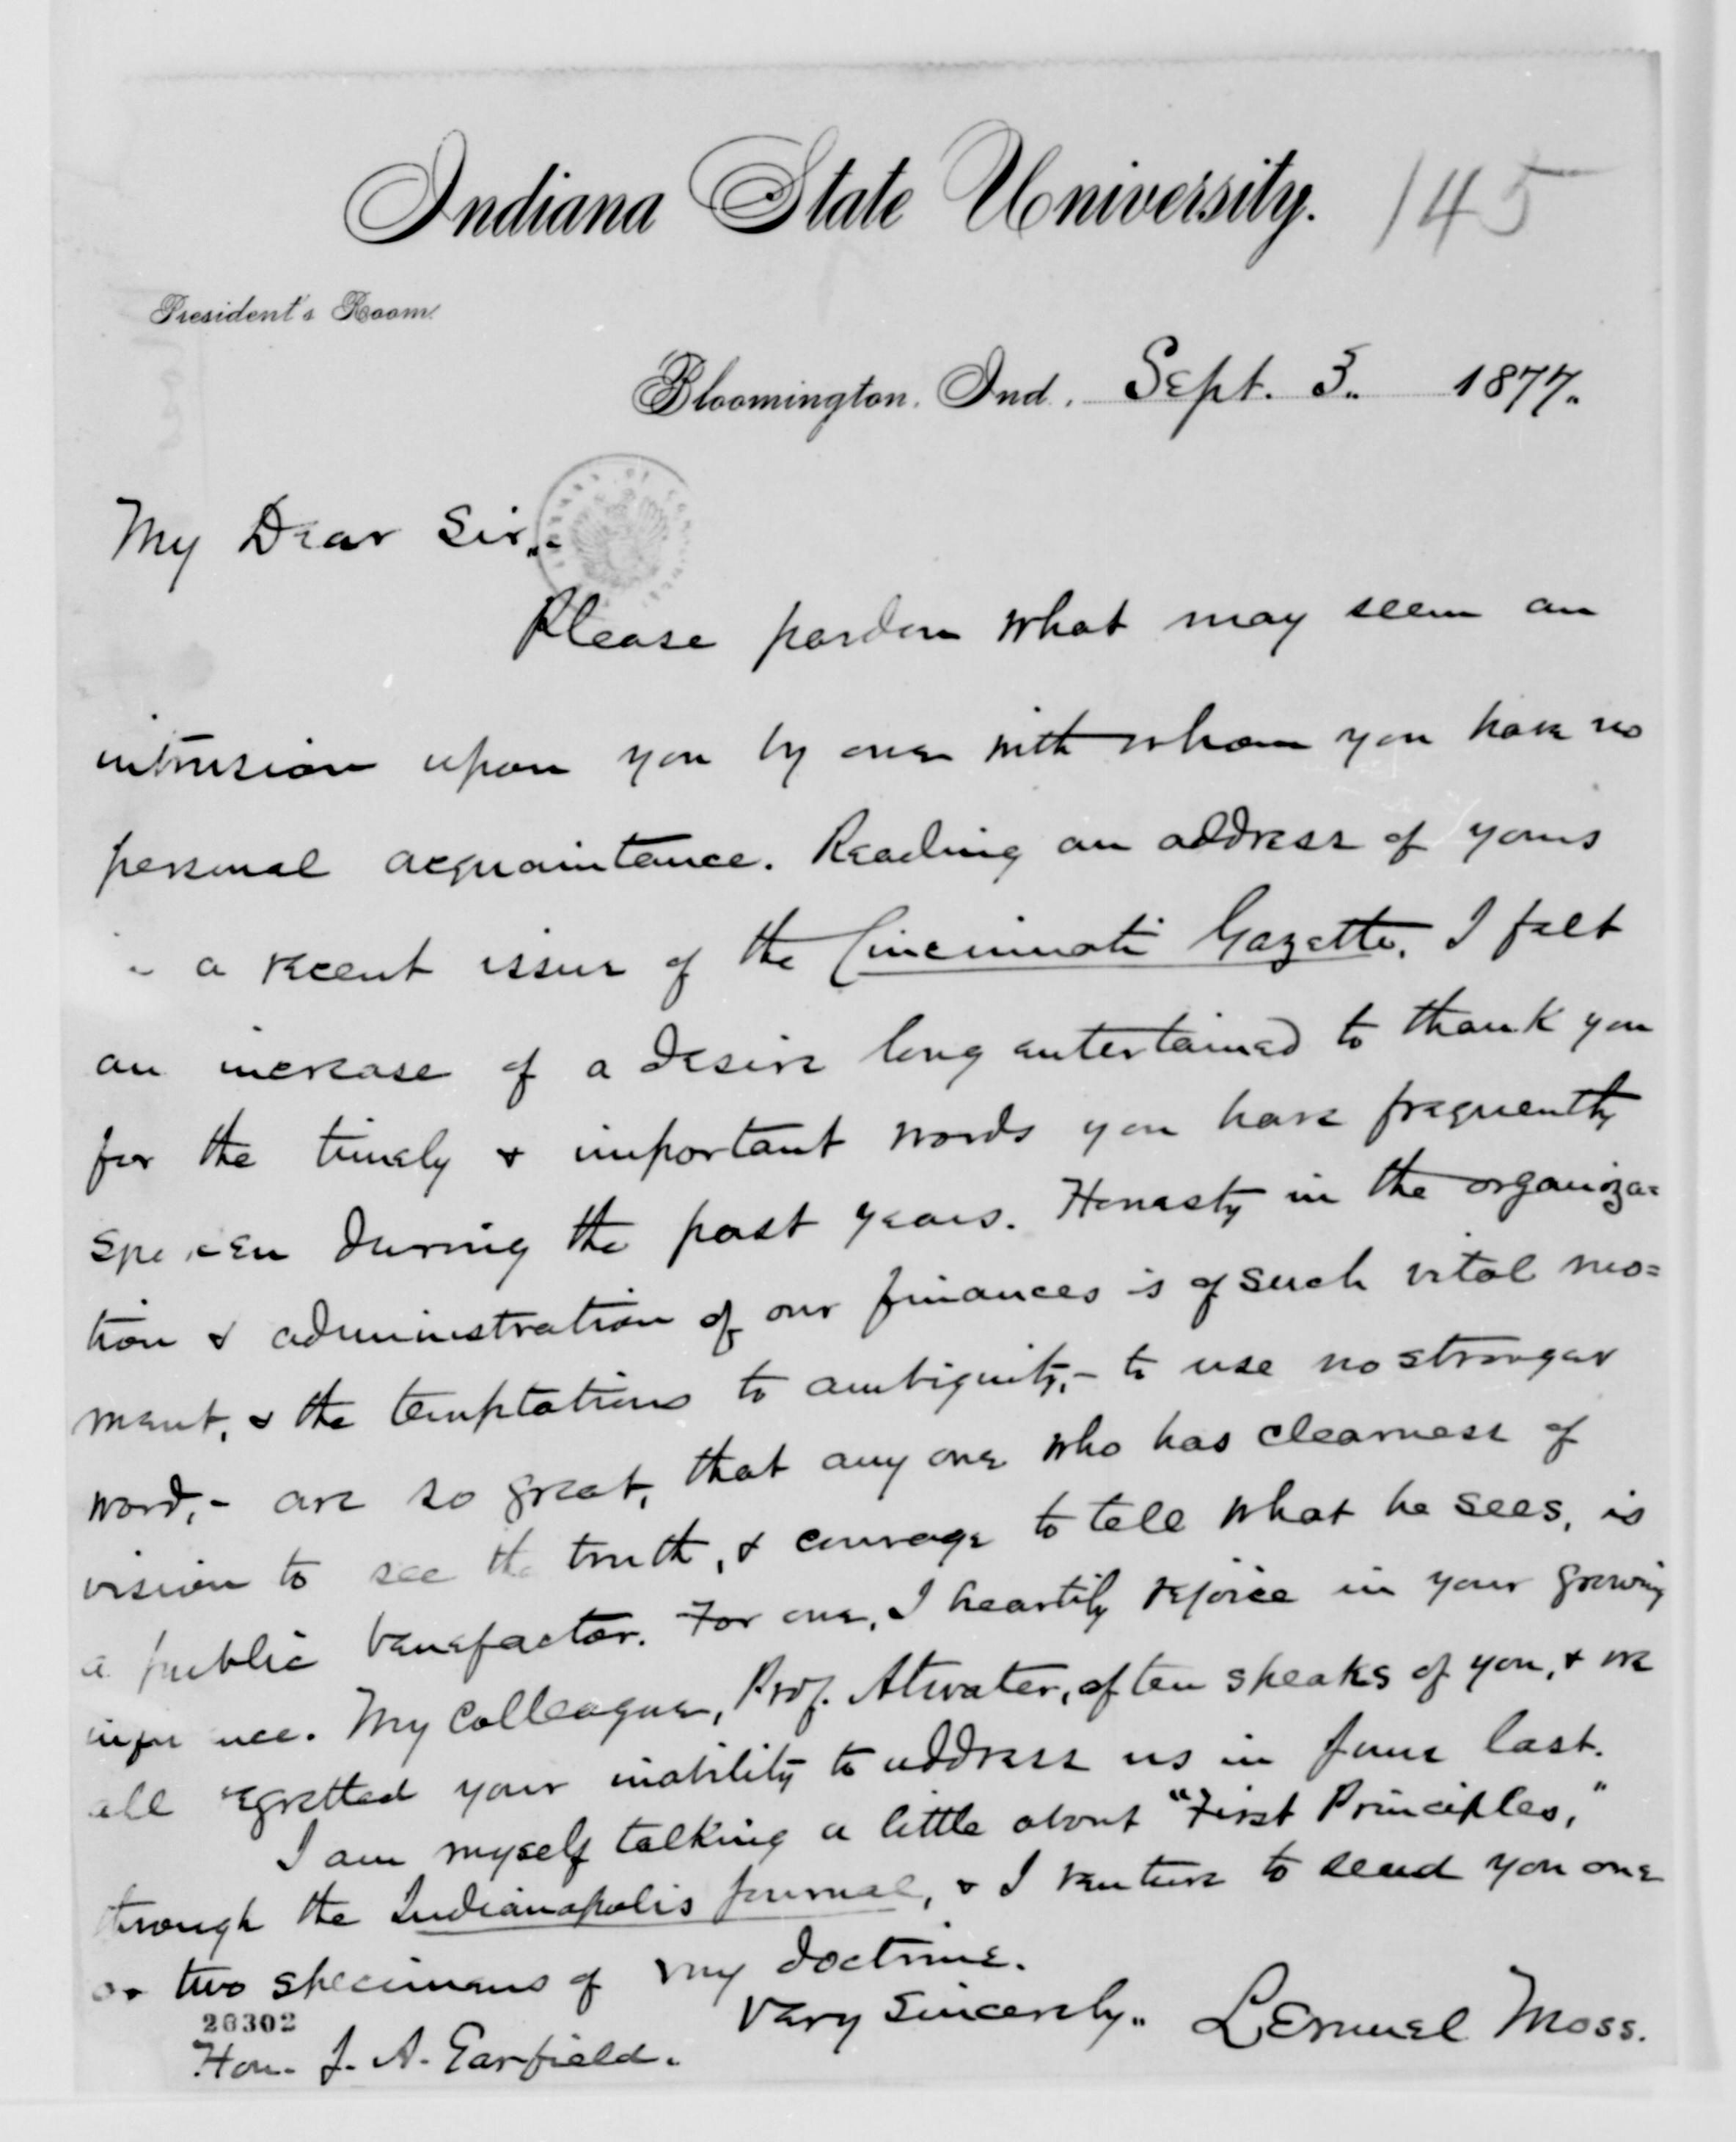 Indiana State University. 145
President's Room.
Bloomington, Ind., Sept. 3. 1877.
My Dear Sir,-
Please pardon what may seem an
intrusion upon you by one with whom you have no
personal acquaintance. Reading an address of yours
in a recent issue of the Cincinnati Gazette, I felt
an increase of a desire long entertained to thank you
for the timely & important words you have frequently
spoken during the past years. Honesty in the organiza=
tion & administration of our finances is of such vital mo=
ment, & the temptations to ambiguity,- to use no stronger
word,- are so great, that any one who has clearness of
vision to see the truth, & courage to tell what he sees, is
a public benefactor. For one, I heartily rejoice in your growing
influence. My colleague, Prof. Atwater, often speaks of you, & we
all regretted your inability to address us in June last.
I am myself talking a little about "First Principles,"
through the Indianapolis Journal, & I venture to send you one
or two specimens of my doctrine.
Very Sincerely, Lemuel Moss.
20302
Hon. J. A. Garfield.